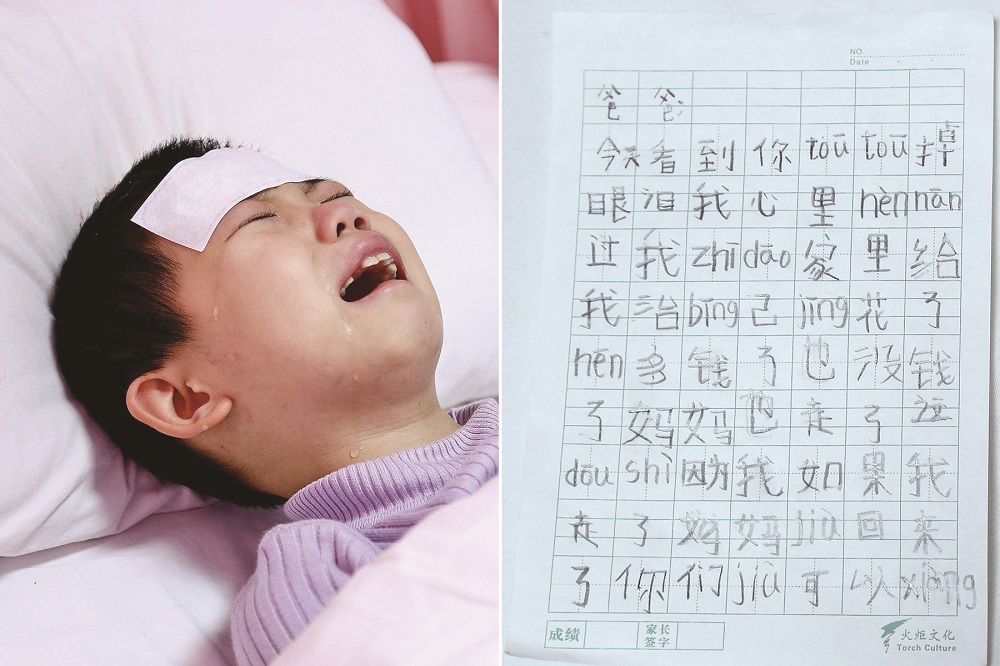 NO.
Date
爸爸
今天看到你tōu tōu掉
眼泪我心里hěnnān
过我zhīdāo家里给
我治bīng己jīng花了
hēn多钱了也没钱
了妈妈也走了这
dōu shì因为我如果我
走了妈妈jiù回来
了你们jiū可以xiàng
成绩
家长
签字
火炬文化
Torch Culture